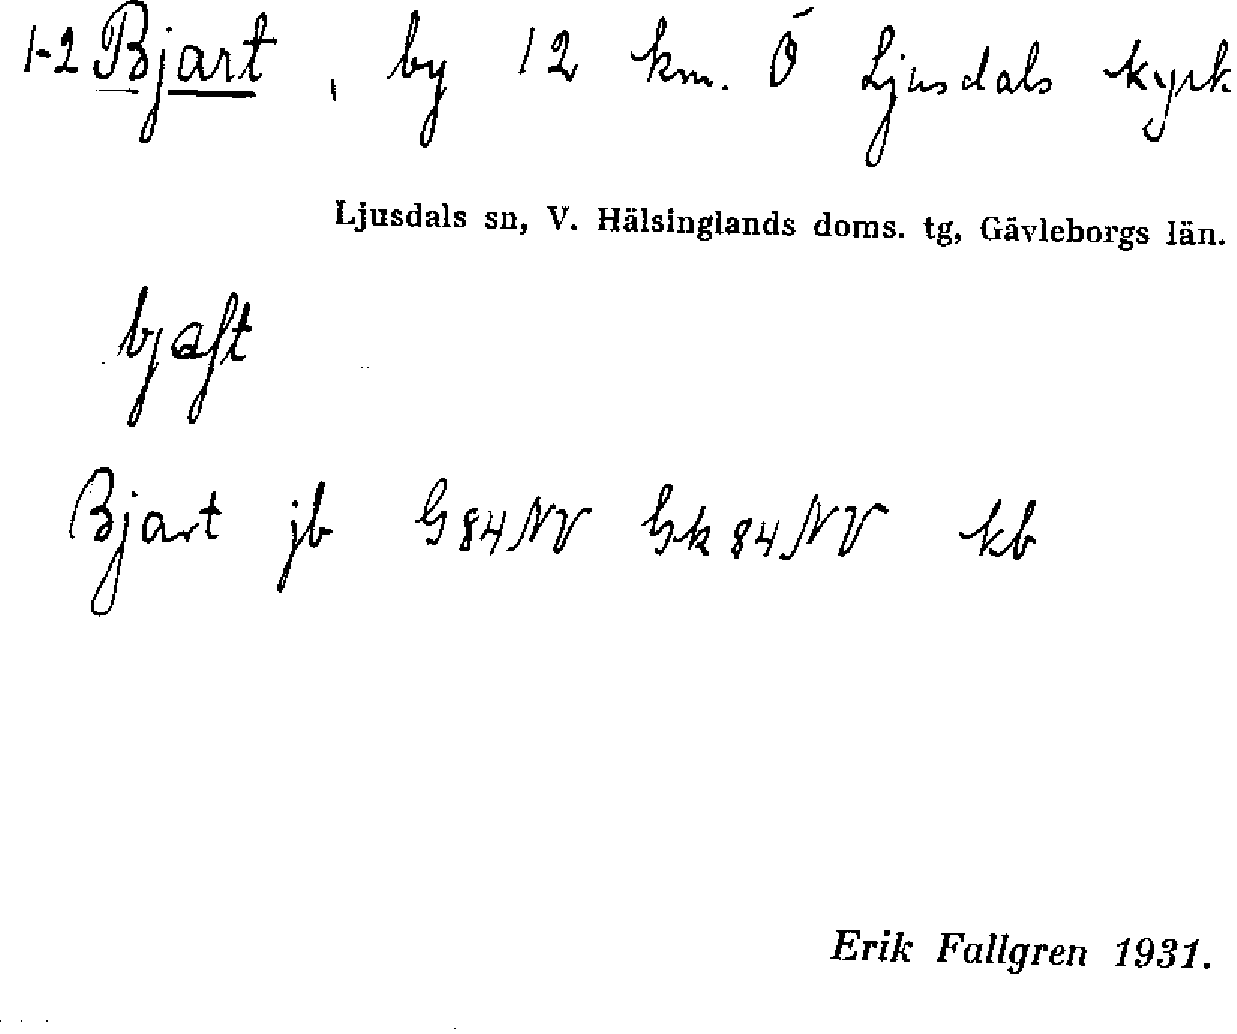 1-2 Bjart, by 12 km. Ö Ljusdals kyrk
Ljusdals sn, V. Hälsinglands doms. tg, Gävleborgs län.
bjaſt
Bjart jb G84NV Gk84NV kb
Erik Fallgren 1931.